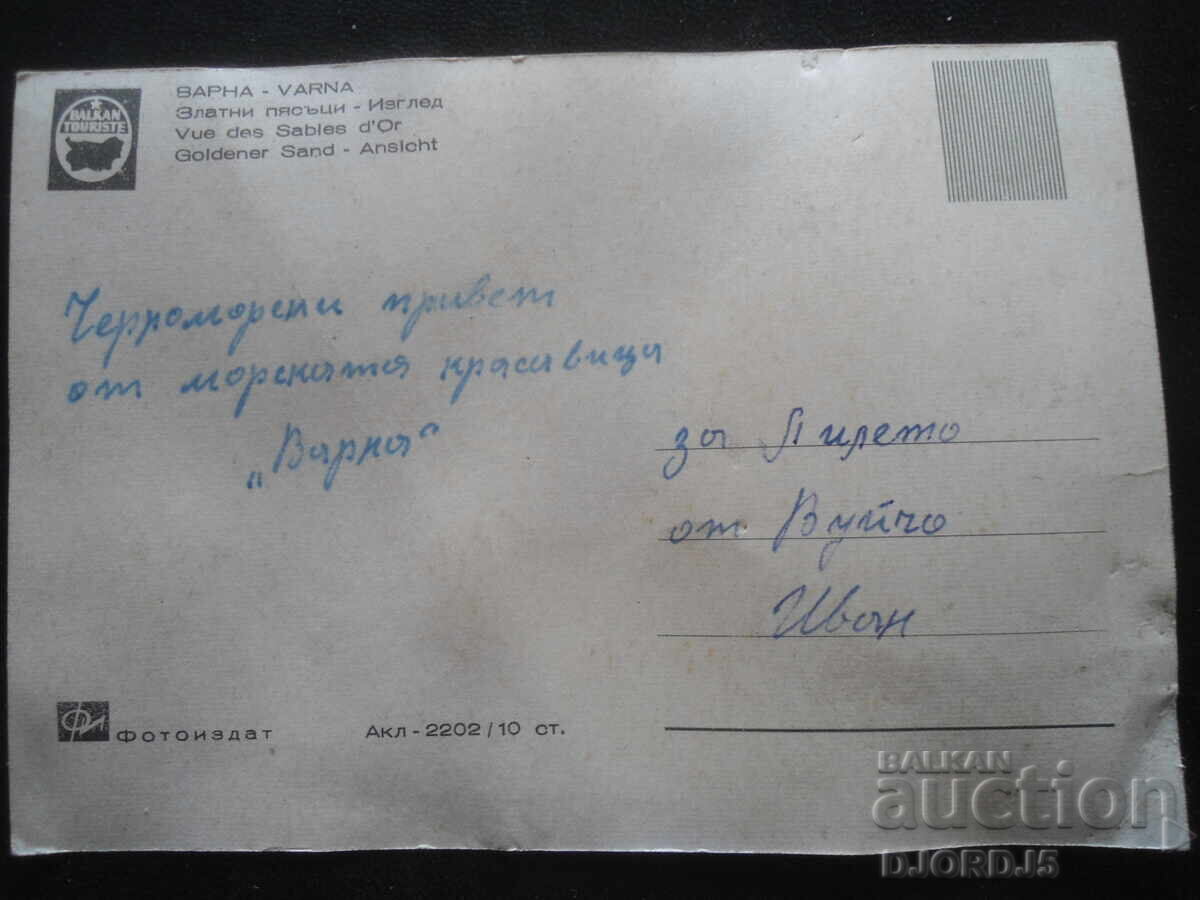 BALKAN
TOURISTE
ВАРНА - VARNA
Златни пясъци - Изглед
Vue des Sables d'Or
Goldener Sand - Ansicht
Черноморски привет
от морската красавица
„Варна“
за Пилето
от Вуйчо
Иван
Фотоиздат
Акл - 2202 / 10 ст.
BALKAN
auction
DJORDJ5